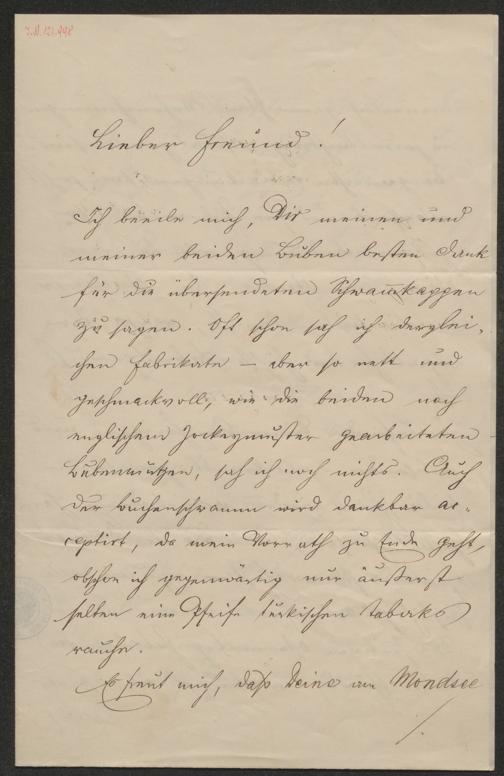 J.N. 121.998
Lieber Freund!
Ich beeile mich, Dir meinen und
meiner beiden Buben besten Dank
für die übersendeten Schwammkappen
zu sagen. Oft schon sah ich derglei-
chen Fabrikate – aber so nett und
geschmackvoll, wie die beiden nach
englischem Jockeymuster gearbeiteten
Bubenmützen, sah ich noch nichts. Auch
der Buchenschwamm wird dankbar ac-
ceptirt, da mein Vorrath zu Ende geht,
obschon ich gegenwärtig nur äußerst
selten eine Pfeife türkischen Tabaks
rauche.
Es freut mich, daß Deine am Mondsee